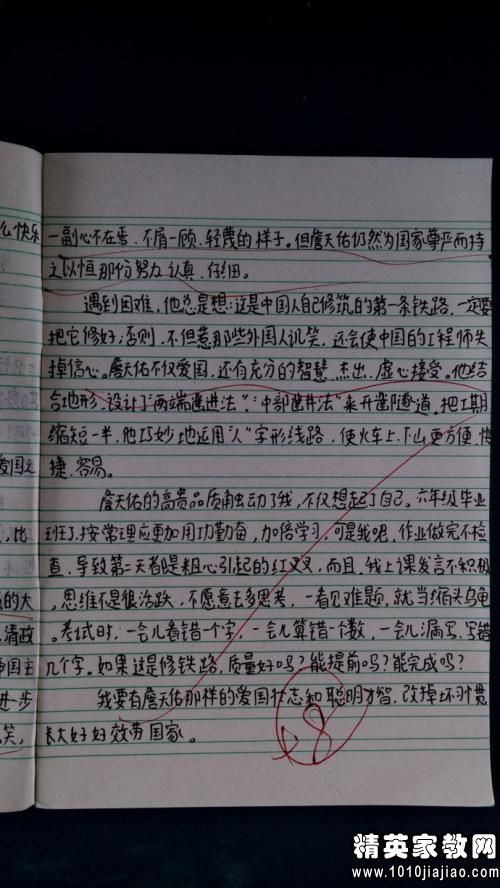 么快乐
一副心不在焉、不屑一顾、轻蔑的样子。但詹天佑仍然为国家尊严而持
之以恒那份努力、认真、仔细。
遇到困难，他总是想：这是中国人自己修筑的第一条铁路，一定要
把它修好；否则，不但惹那些外国人讥笑，还会使中国的工程师失
掉信心。詹天佑不仅爱国，还有充分的智慧、杰出、虚心接受。他结
合地形，设计了“两端凿进法”、“中部凿井法”来开凿隧道。把工期
缩短一半，他巧妙地运用“人”字形线路，使火车上、下山更方便、快
捷、容易。
詹天佑的高贵品质触动了我，不仅想起了自己。六年级毕业
，比
班了，按常理应更加用功勤奋，加倍学习，可是我呢，作业做完不检
查，导致第二天者是粗心引起的红叉叉，而且，我上课发言不积极
的大
，思维不是很活跃，不愿意去多思考，一看见难题，就当缩头乌龟
清政
。考试时，一会儿看错一个字，一会儿算错一个数，一会儿漏写、写错
帝国主
几个字。如果这是修铁路，质量好吗？能提前吗？能完成吗？
进步
我要有詹天佑那样的爱国壮志和聪明才智，改掉坏习惯
笑，
长大好好效劳国家。
精英家教网
www.1010jiajiao.com